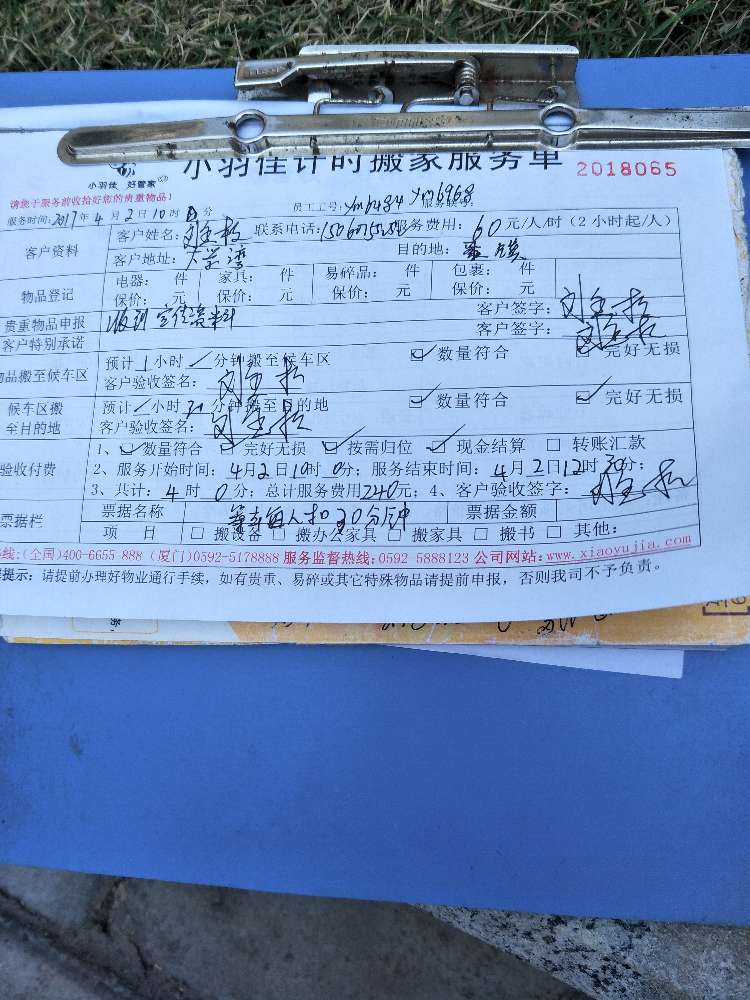 小羽佳计时搬家服务单 2018065
小羽佳 好管家
请您于服务前收拾好您的贵重物品!
服务时间:2017年4月2日10时 分 员工工号:
客户资料 客户姓名: 联系电话: 服务费用:60元/人/时(2小时起/人)
客户地址: 目的地:
物品登记 电器: 件 家具: 件 易碎品: 件 包裹: 件
保价: 元 保价: 元 保价: 元 保价: 元
贵重物品申报 收到宣传资料 客户签字:
客户特别承诺 客户签字:
物品搬至候车区 预计1小时 分钟搬至候车区 数量符合 完好无损
客户验收签名:
候车区搬至目的地 预计 小时30分钟搬至目的地 数量符合 完好无损
客户验收签名:
验收付费 1、 数量符合 完好无损 按需归位 现金结算 转账汇款
2、服务开始时间:4月2日10时0分;服务结束时间:4月2日12时30分;
3、共计:4时0分;总计服务费用240元;4、客户验收签字:
票据栏 票据名称 每人扣30分钟 票据金额
项 目 搬设备 搬办公家具 搬家具 搬书 其他:
线:(全国)400-6655 888 (厦门)0592-5178888 服务监督热线:0592 5888123 公司网站:www.xiaoyujia.com
提示:请提前办理好物业通行手续,如有贵重、易碎或其它特殊物品请提前申报,否则我司不予负责。